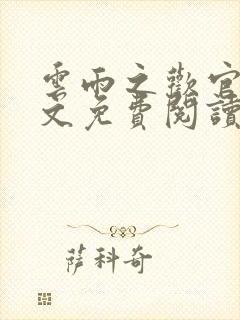 雲雨之歡官
文免費閱讀
薩科奇